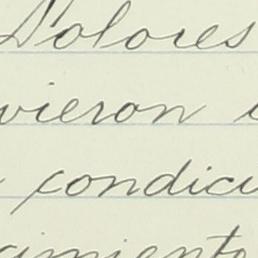 Dolores
vieron
condici
amiento